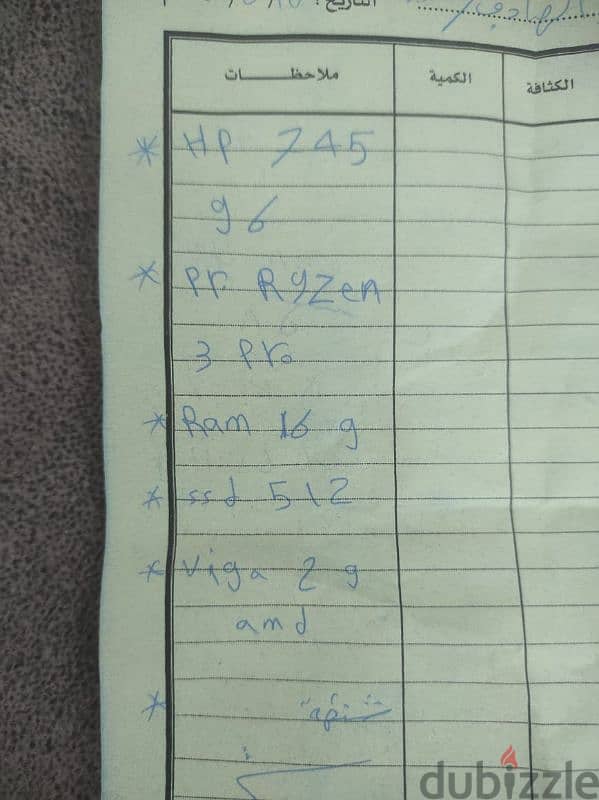 التاريخ:
ملاحظات الكمية الكثافة
* HP 745
g6
* Pr Ryzen
3 pro
* Ram 16 g
* ssd 512
* Viga 2 g
amd
*
dubizzle